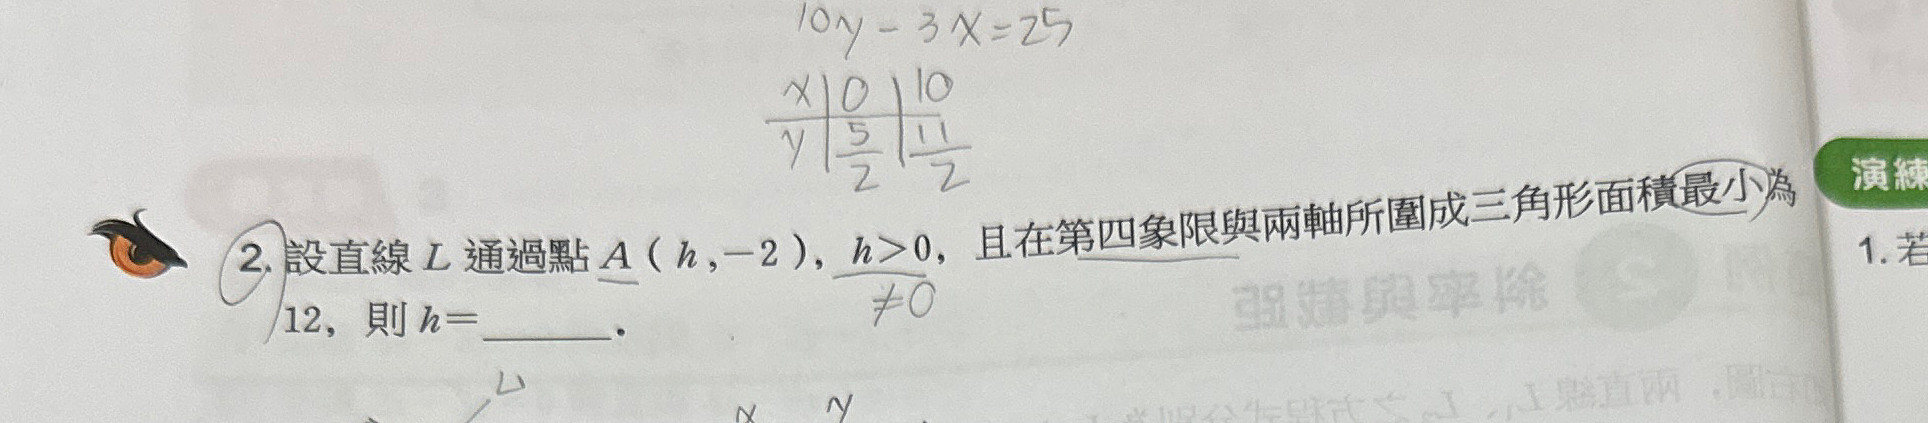 10y - 3x = 25
x | 0 | 10
y | 5/2 | 11/2
2. 設直線 L 通過點 A ( h , -2 ), h > 0, 且在第四象限與兩軸所圍成三角形面積最小為
≠0
12, 則 h = ______.
演練
1. 若
斜率與截距
L
x y